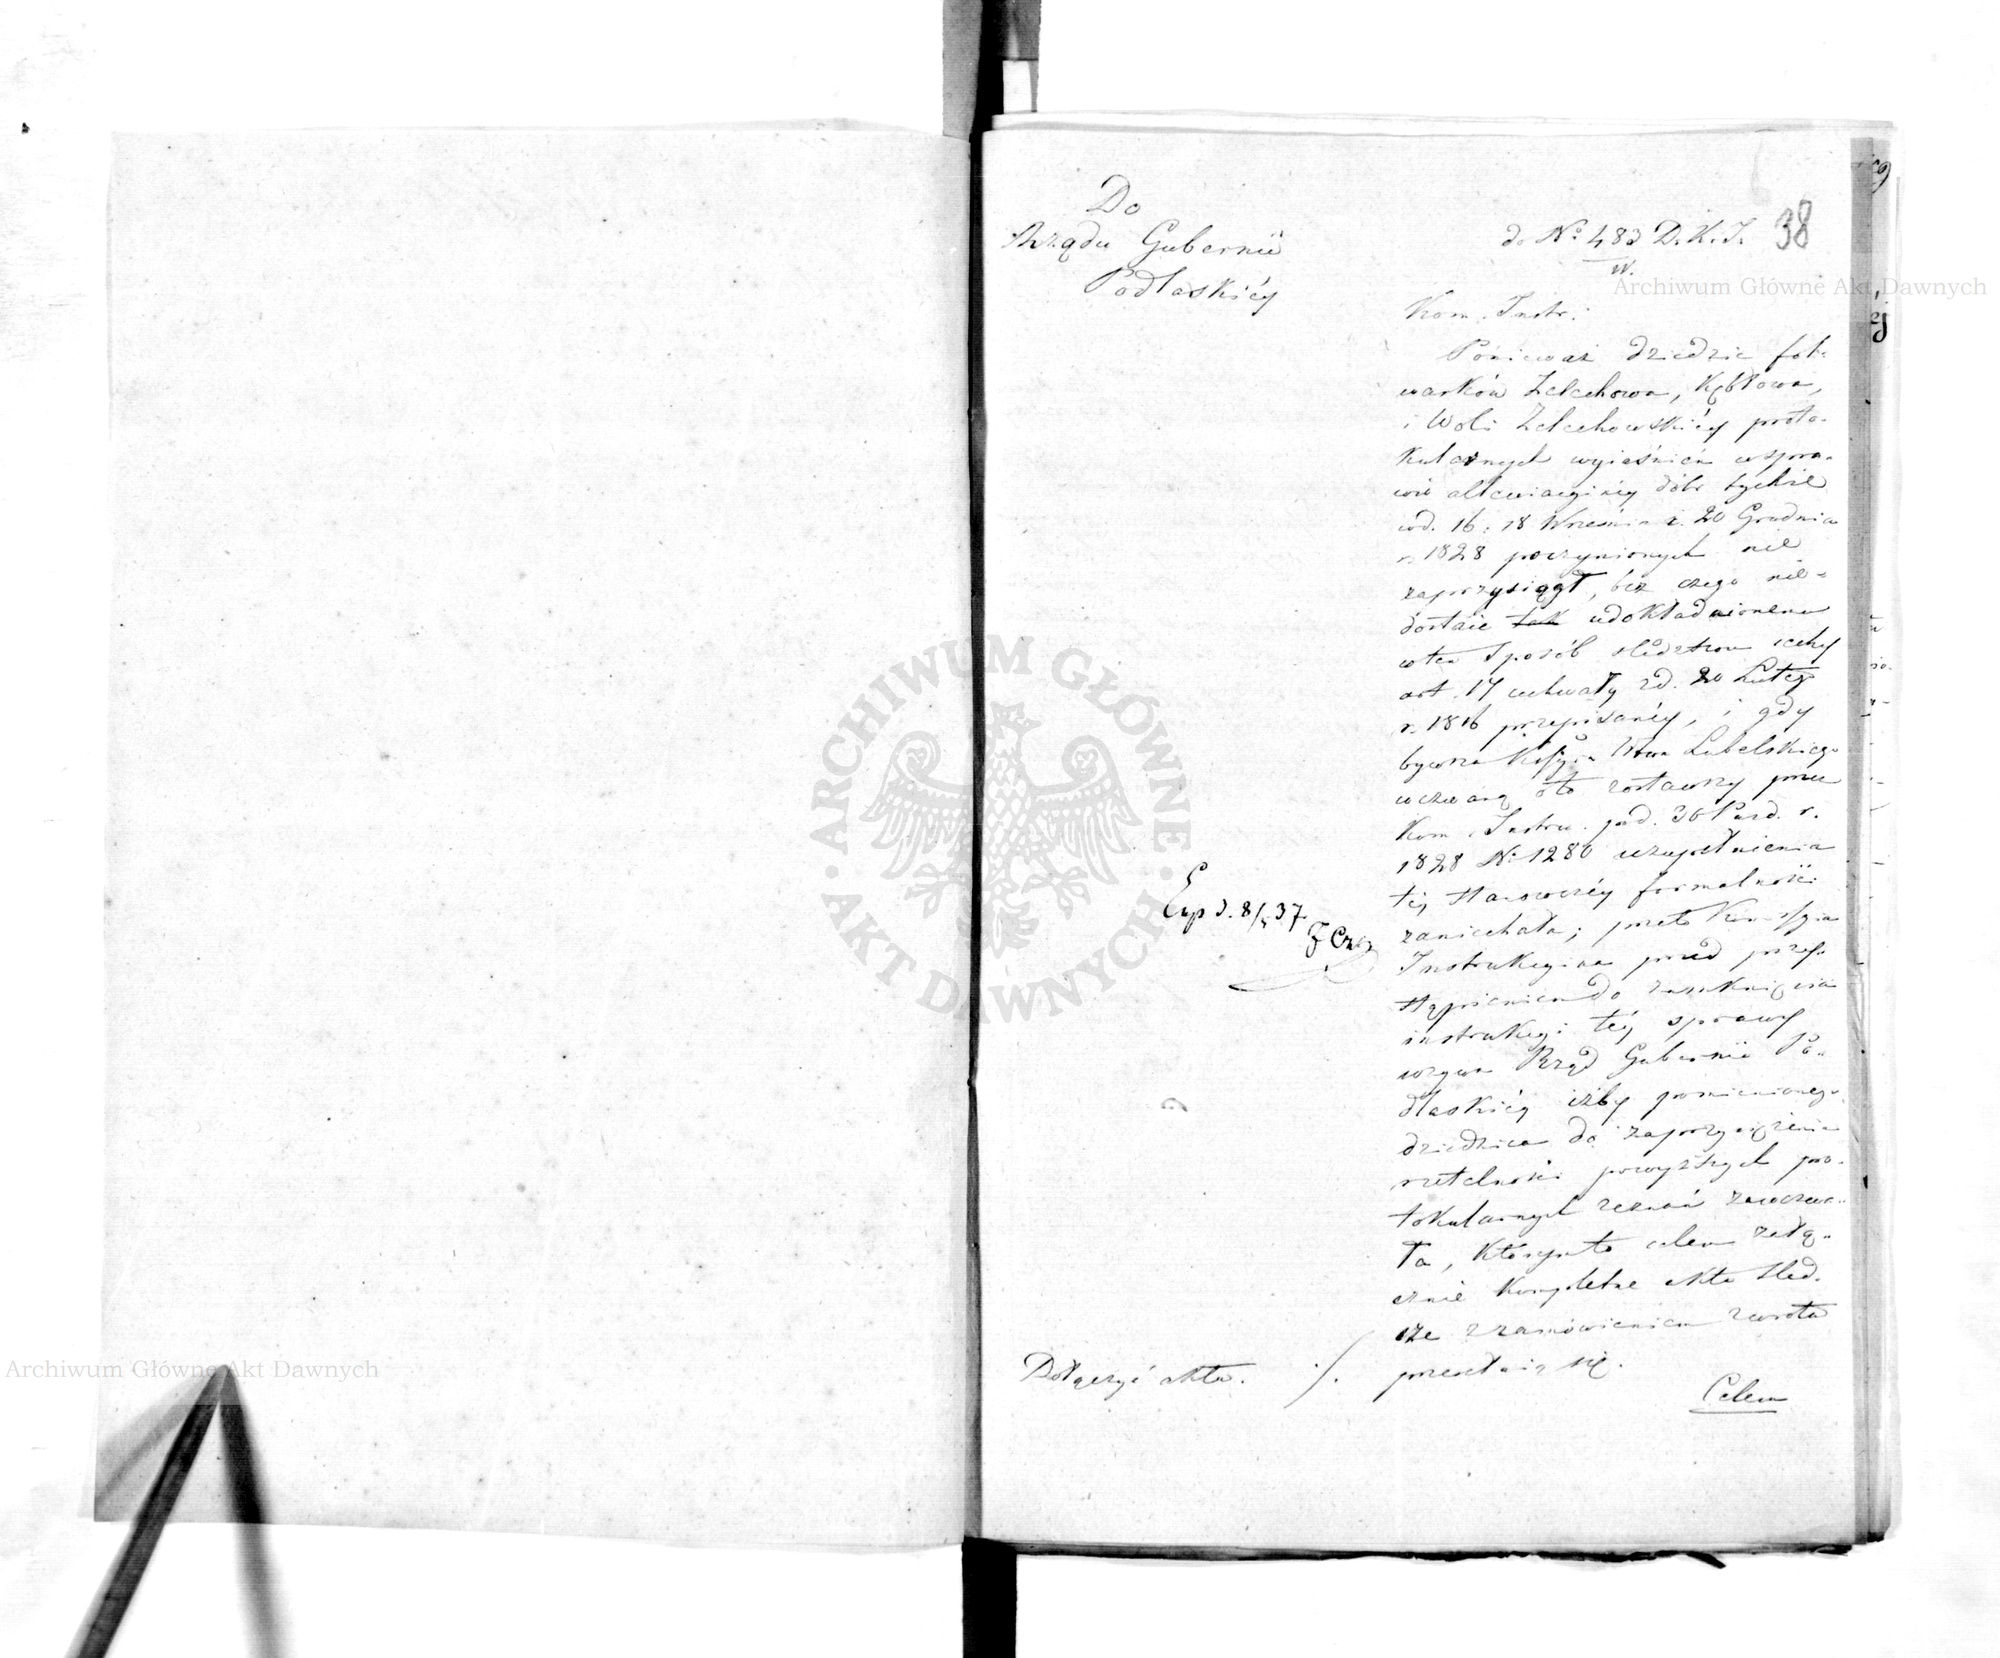 38
Do
Rządu Gubernii
Podlaskiéy
do Nº 483 D. K. I.
W.
Kom. Instr.
Ponieważ dziedzic fol-
warków Żelechowa, Kębłowa,
i Woli Żelechowskiéy proto-
kularnych wyiaśnień w spra-
wie allewiacyinéy dóbr tychże
w d. 16 i 18 Września i 20 Grudnia
r. 1828 poczynionych nie
zaprzysiągł, bez czego nie-
dostaie tak udokładnionemu
w ten sposób śledztwu cechy
art. 17 uchwały z d. 20 Lutego
r. 1816 przepisanéy, i gdy
bywsza Kommissya Wwa Lubelskiego
wezwaną o to zostawszy przez
Kom. Instru. pod d. 30 Pazd. r.
1828 Nº 1280 uzupełnienia
téj stanowczéy formalności
zaniechała; przeto Kommissyia
Instrukcyina przed przy-
stąpieniem do zamknięcia
instrukcyi téy sprawy
wzywa Rząd Gubernii Po-
dlaskiéy iżby pomienionego
dziedzica do zaprzysiężenia
rzetelności powyższych pro-
tokularnych zeznań zawezwa-
ła, którymto celem załą-
cznie kompletne akta śled-
cze z zamówieniem zwrotu
przesełaią się.
Exp d. 8/5 37
Dołączyć akta. ./.
Celem
Archiwum Główne Akt Dawnych
Archiwum Główne Akt Dawnych
ARCHIWUM GŁÓWNE · AKT DAWNYCH ·